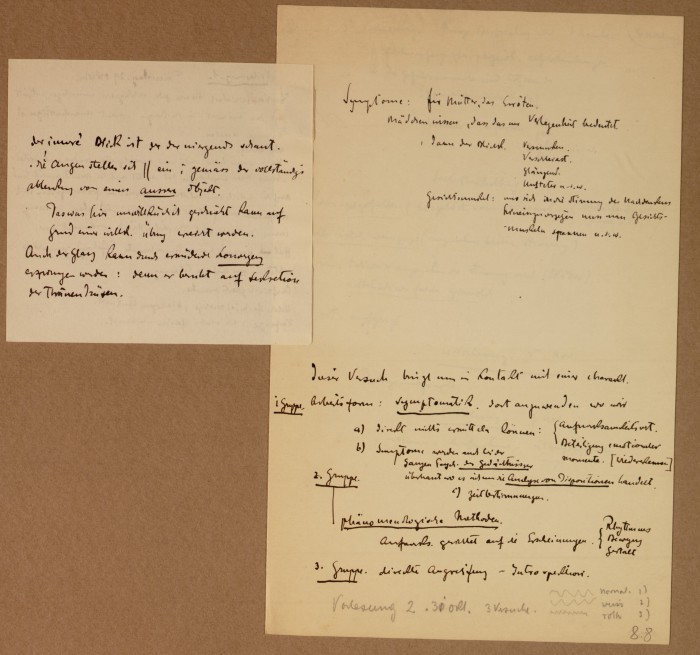 der innere Blick ist der der niergends schaut.
die Augen stellen sich || ein ; gemäss der vollständig
ablenkung von einem äussern Objekt.
Das was hier unwillkürlich geschieht kann auf
Grund einer willk. Übung erreicht werden.
Auch der Glanz kann durch ermüdende Konvergenz
erzwungen werden : denn er beruht auf Sekretion
der Thränendrüsen.
Symptome: für Mutter, das Erröten.
Mädchen wissen, dass das was Verlegenheit bedeutet
, dann der Blick. Versunken.
Verschleiert.
Glänzend.
Unsteter u.s.w.
Gesichtsmuskel: um sich in die Stimmung des Nachdenkens
hineinzuzwingen muss man Gesichts-
muskeln spannen u.s.w.
Dieser Versuch bringt uns in Kontakt mit einer charakt.
1 Gruppe. Arbeitsform: Symptomatik. dort anzuwenden wo wir
a) direkt nichts ermitteln können: Aufmerksamkeitsort.
Beteiligung emotioneller
momente. [Wiedererkennen]
b) Symptome werden auch bei der
ganzen Psych. des Gedächtnisses
überhaupt wo es sich um die Analyse von Dispositionen handelt.
c) Zeitbestimmungen.
2. Gruppe.
phänomenologische Methoden.
Aufmerks. gerichtet auf die Erscheinungen. Rhythmus
Bewegung
Gestalt
3. Gruppe. direkte Angreifung – Introspektion.
Vorlesung 2. 30 Okt. 3 Versuche.
normal. 1)
weiss 2)
roth 3)
88